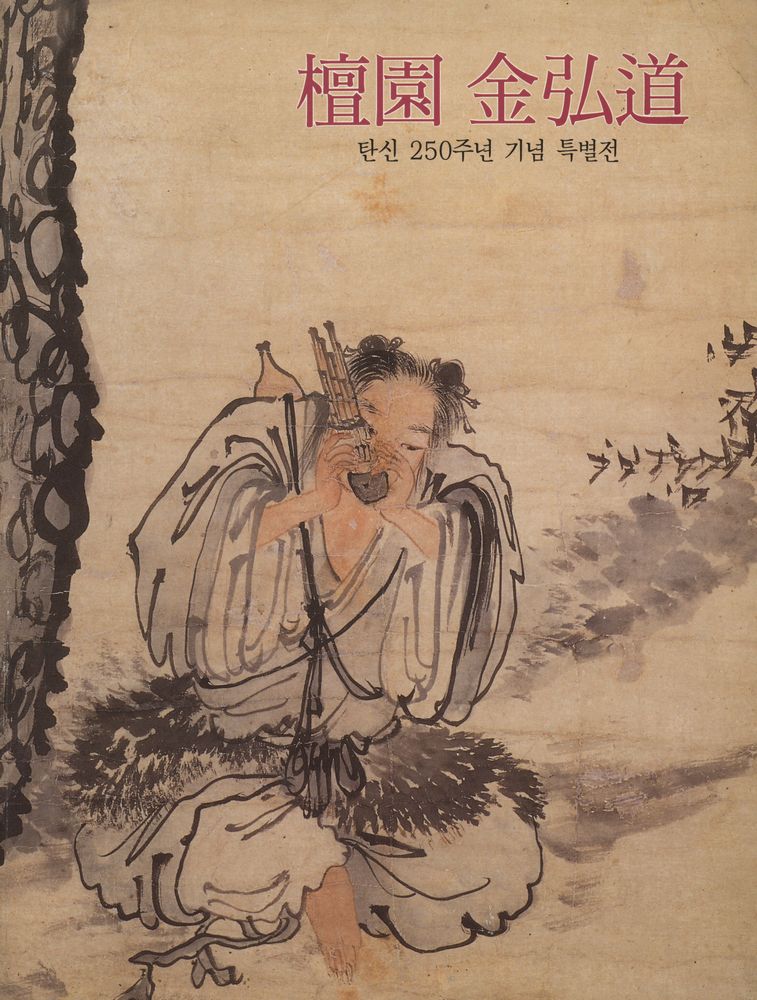 檀園 金弘道
탄신 250주년 기념 특별전